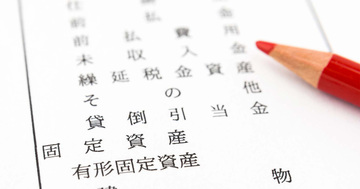 前払金
前払費用
未収入金
繰延税金資産
その他
貸倒引当金
固定資産
有形固定資産
建物